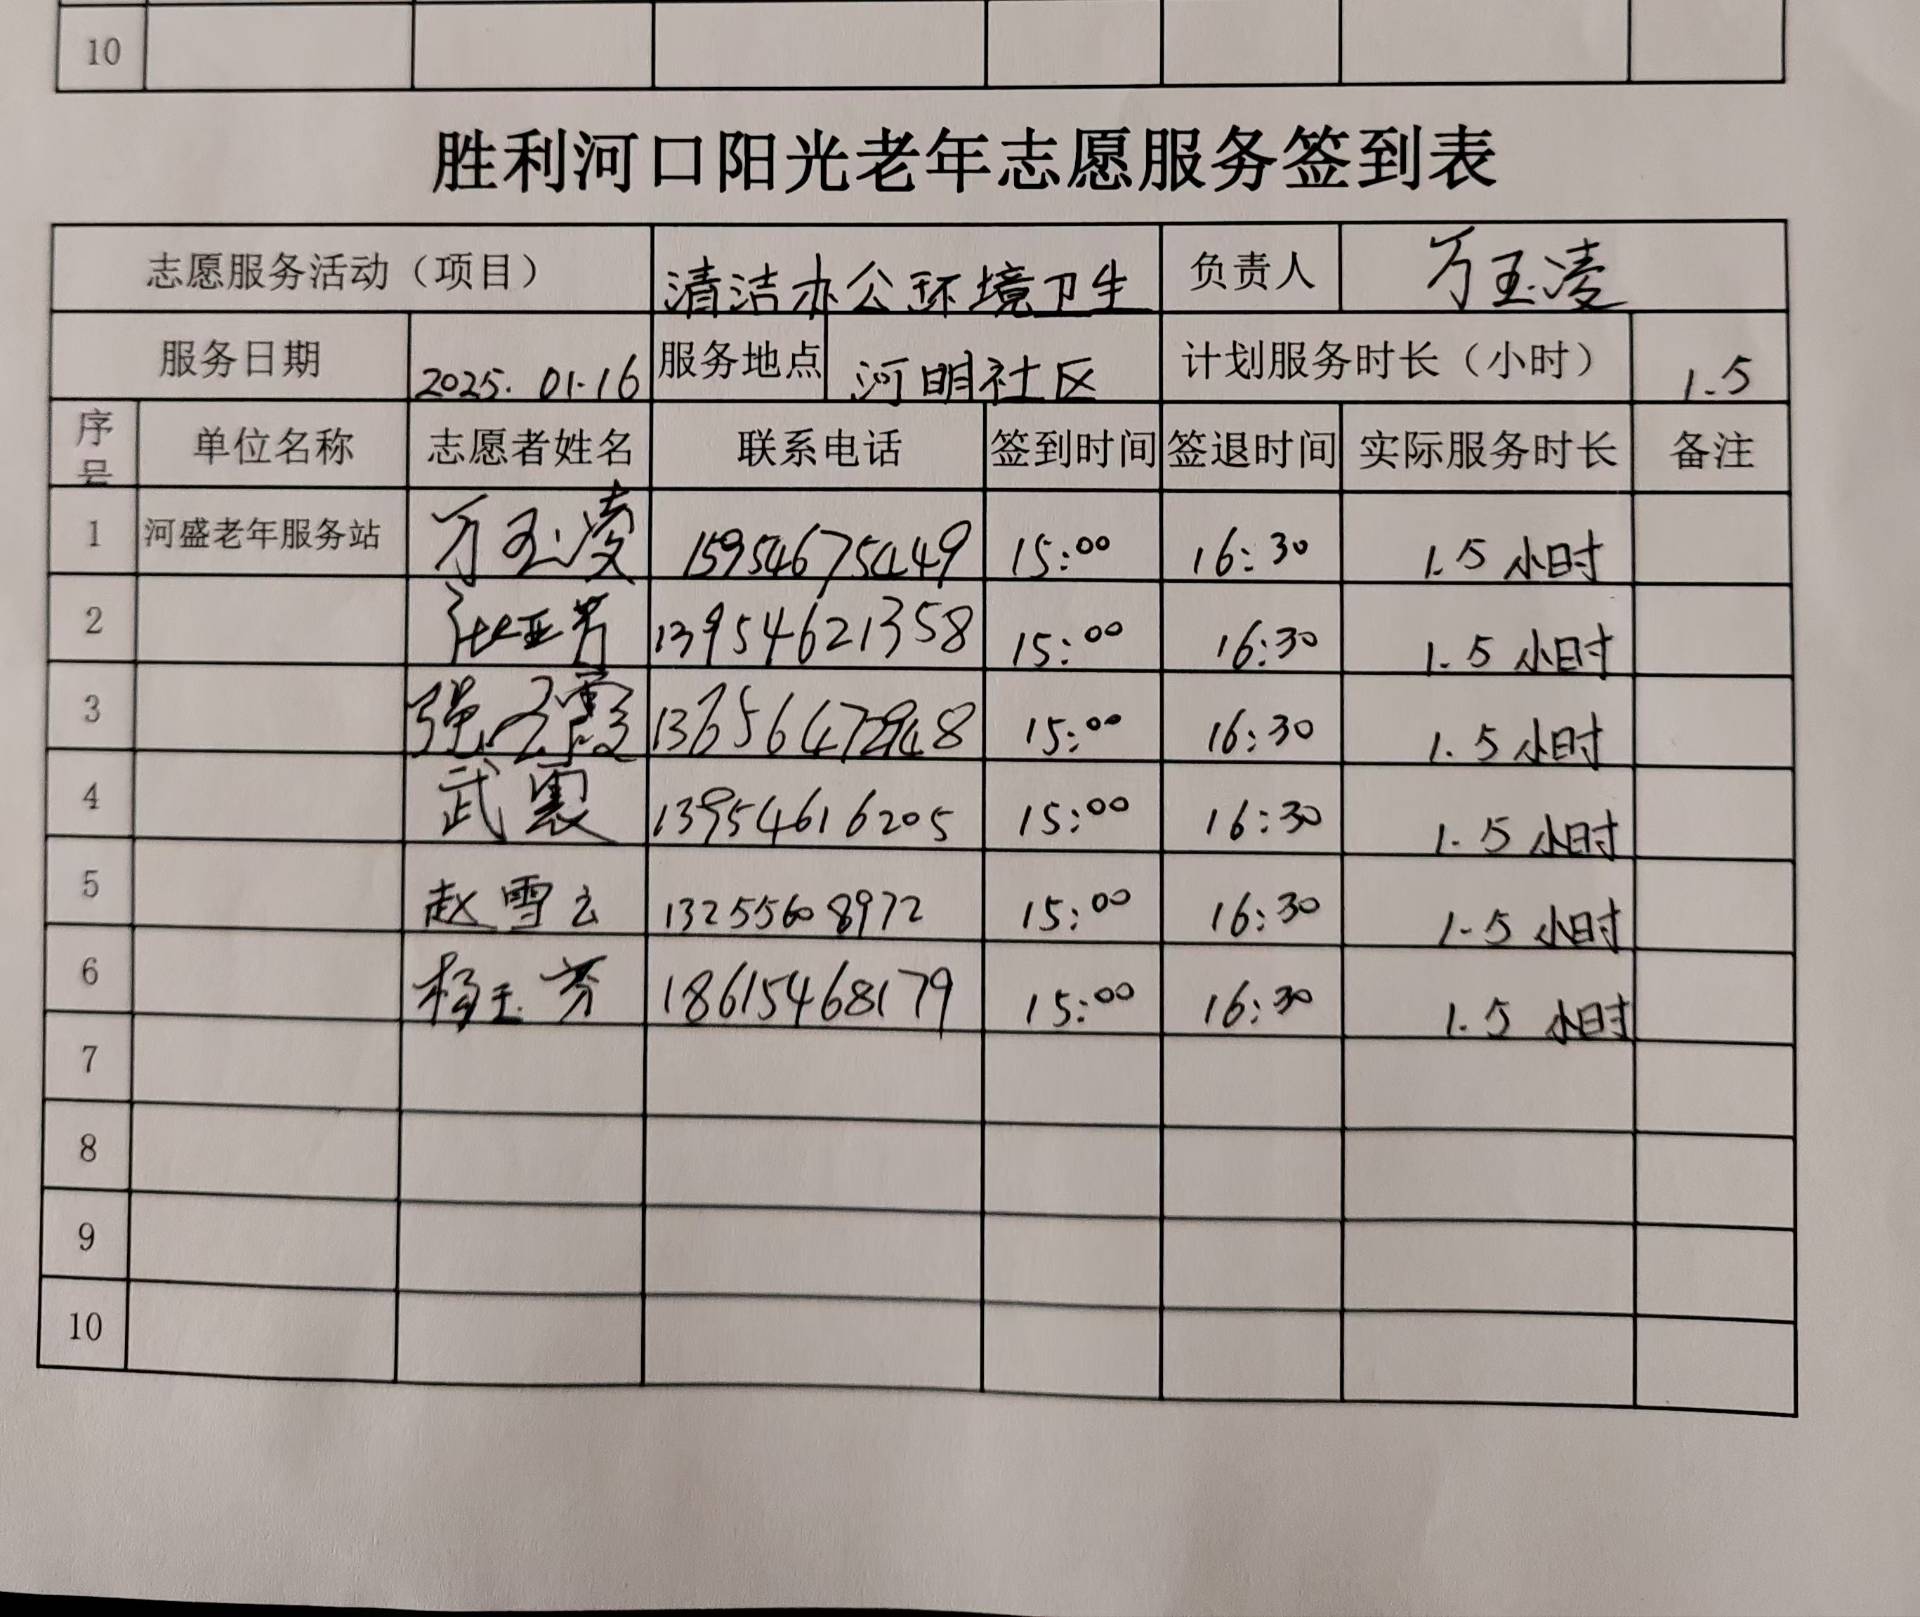 10
胜利河口阳光老年志愿服务签到表
志愿服务活动（项目） 清洁办公环境卫生 负责人 万玉凌
服务日期 2025.01.16 服务地点 河明社区 计划服务时长（小时） 1.5
序号 单位名称 志愿者姓名 联系电话 签到时间 签退时间 实际服务时长 备注
1 河盛老年服务站 万玉凌 15954675449 15:00 16:30 1.5小时
2 13954621358 15:00 16:30 1.5小时
3 15:00 16:30 1.5小时
4 武 13954616205 15:00 16:30 1.5小时
5 赵雪云 13255608972 15:00 16:30 1.5小时
6 杨玉芬 18615468179 15:00 16:30 1.5小时
7
8
9
10